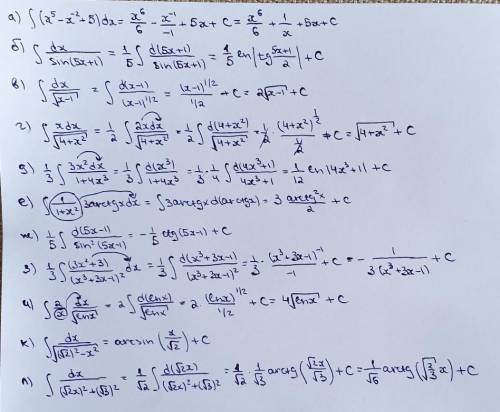 а) ∫(x⁵ - x⁻² + 5)dx = x⁶/6 - x⁻¹/-1 + 5x + C = x⁶/6 + 1/x + 5x + C
б) ∫ dx/sin(5x+1) = 1/5 ∫ d(5x+1)/sin(5x+1) = 1/5 ln|tg (5x+1)/2| + C
в) ∫ dx/√(x-1) = ∫ d(x-1)/(x-1)^1/2 = (x-1)^1/2 / 1/2 + C = 2√(x-1) + C
г) ∫ xdx/√(4+x²) = 1/2 ∫ 2xdx/√(4+x²) = 1/2 ∫ d(4+x²)/√(4+x²) = 1/2 · (4+x²)^1/2 / 1/2 + C = √(4+x²) + C
д) 1/3 ∫ 3x²dx/(1+4x³) = 1/3 ∫ d(x³)/(1+4x³) = 1/3 · 1/4 ∫ d(4x³+1)/(4x³+1) = 1/12 ln|4x³+1| + C
е) ∫ (1/(1+x²)) 3arctgx dx = ∫ 3arctgx d(arctgx) = 3 arctg²x/2 + C
ж) 1/5 ∫ d(5x-1)/sin²(5x-1) = -1/5 ctg(5x-1) + C
з) 1/3 ∫ (3x²+3)/(x³+3x-1)² dx = 1/3 ∫ d(x³+3x-1)/(x³+3x-1)² = 1/3 · (x³+3x-1)⁻¹/-1 + C = - 1/(3(x³+3x-1)) + C
и) ∫ (2/x) dx/√lnx = 2 ∫ d(lnx)/√lnx = 2 · (lnx)^1/2 / 1/2 + C = 4√lnx + C
к) ∫ dx/√((√2)²-x²) = arcsin(x/√2) + C
л) ∫ dx/((√2x)²+(√3)²) = 1/√2 ∫ d(√2x)/((√2x)²+(√3)²) = 1/√2 · 1/√3 arctg(√2x/√3) + C = 1/√6 arctg(√(2/3) x) + C